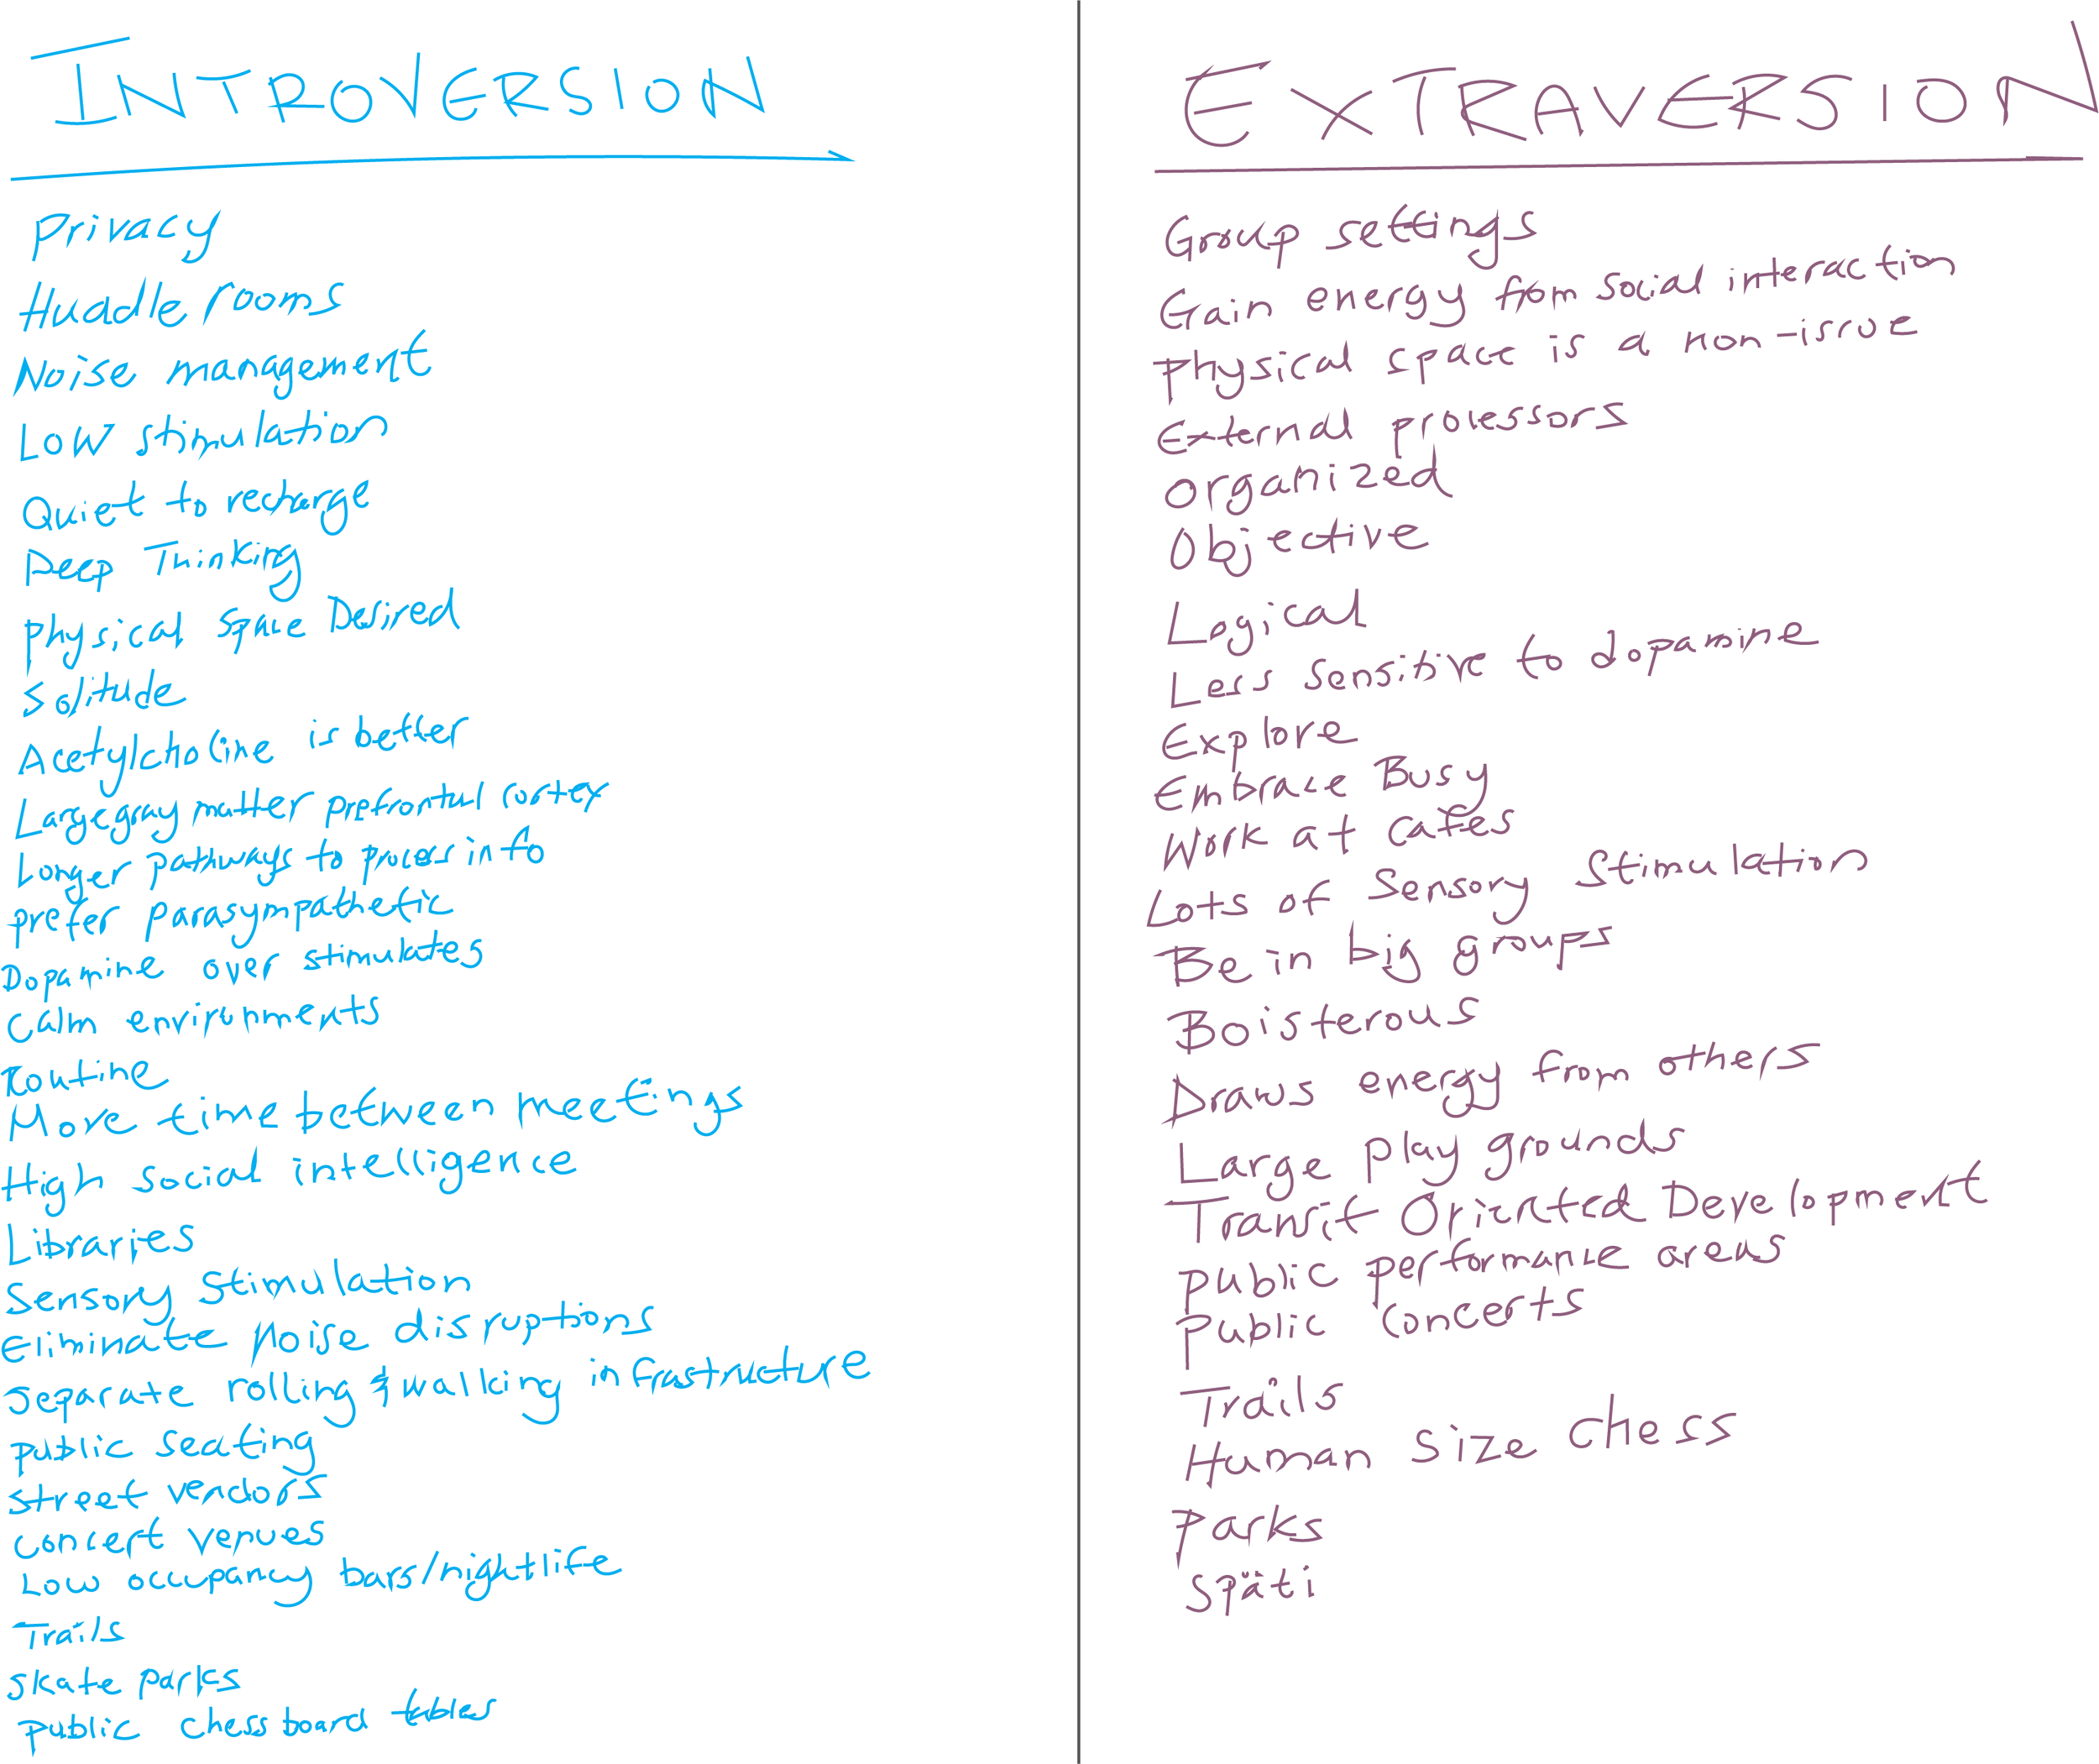 INTROVERSION
Privacy
Huddle rooms
Noise management
Low stimulation
Quiet to recharge
Deep Thinking
Physical space Desired
Solitude
Acetylcholine is better
Large gray matter prefrontal cortex
Longer pathways to process info
Prefer parasympathetic
Dopamine over stimulates
Calm environments
Routine
More time between meetings
High social intelligence
Libraries
Sensory Stimulation
Eliminate Noise disruptions
Separate rolling & walking infrastructure
Public seating
Street vendors
Concert venues
Low occupancy bars/nightlife
Trails
Skate parks
Public chessboard tables
EXTRAVERSION
Group settings
Gain energy from social interaction
Physical space is a non-issue
External processors
Organized
Objective
Logical
Less sensitive to dopamine
Explore
Embrace Busy
Work at Cafes
Lots of Sensory Stimulation
Be in big groups
Boisterous
Draws energy from others
Large play grounds
Transit Oriented Development
Public performance areas
Public Concerts
Trails
Human size chess
Parks
Späti